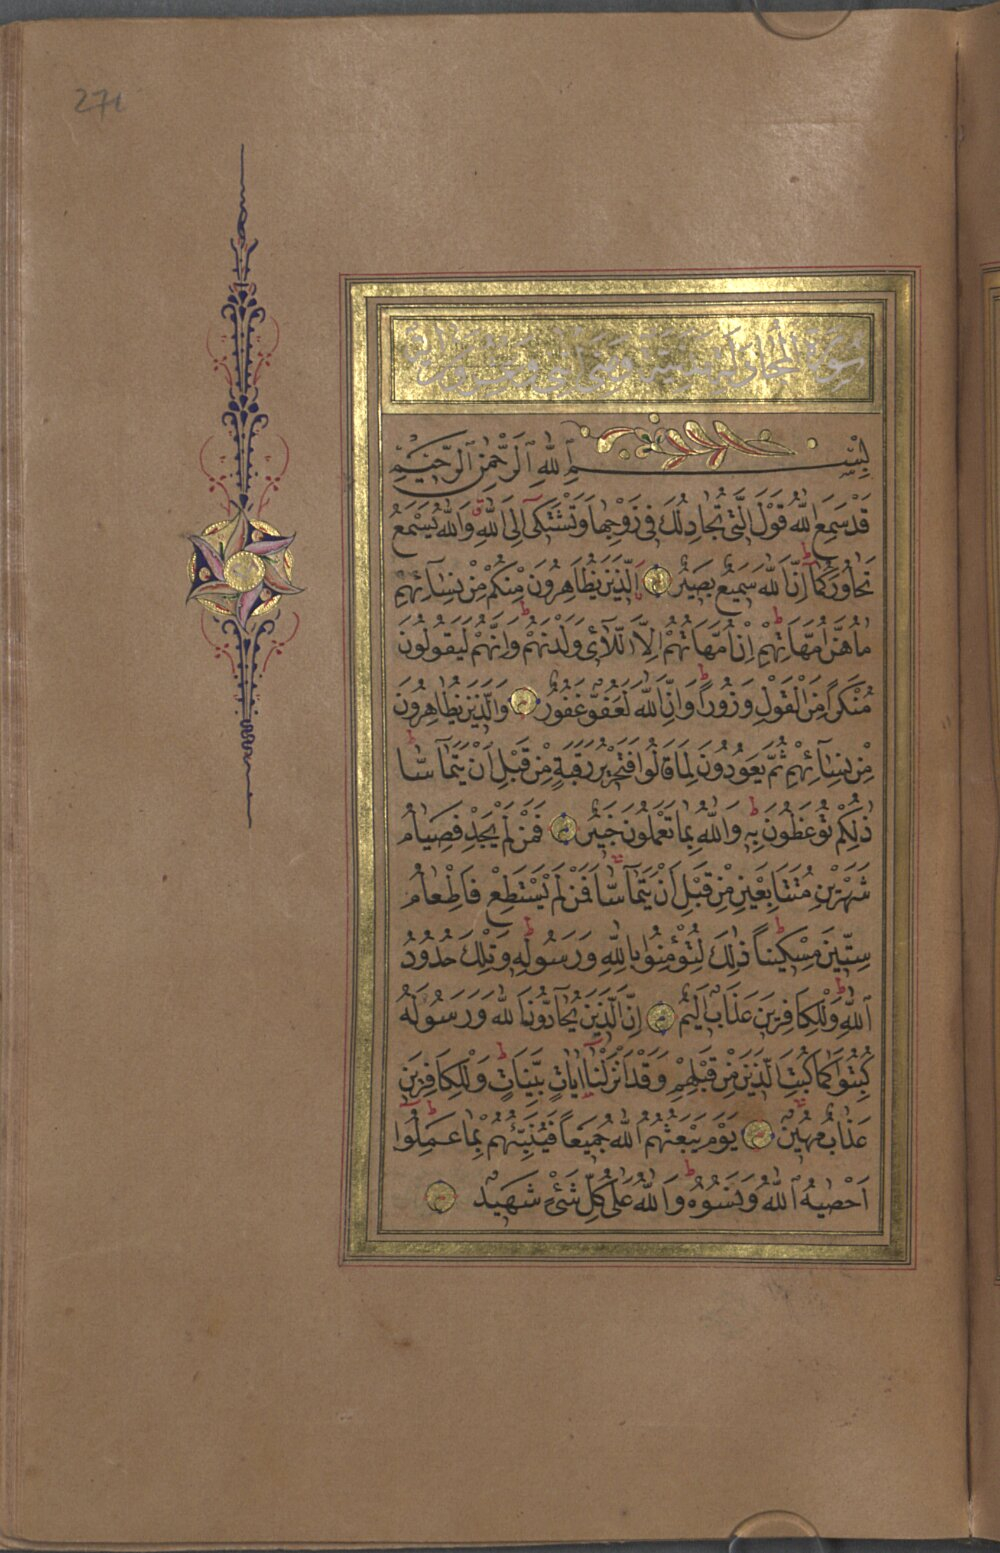 271
سورة المجادلة مدنية وهي اثنتان وعشرون آية
بِسْمِ ٱللّٰهِ ٱلرَّحْمٰنِ ٱلرَّحِيمِ
قَدْ سَمِعَ اللّٰهُ قَوْلَ الَّتِي تُجَادِلُكَ فِي زَوْجِهَا وَتَشْتَكِي إِلَى اللّٰهِ وَاللّٰهُ يَسْمَعُ
تَحَاوُرَكُمَا إِنَّ اللّٰهَ سَمِيعٌ بَصِيرٌ اَلَّذِينَ يُظَاهِرُونَ مِنْكُمْ مِنْ نِسَآئِهِمْ
مَا هُنَّ اُمَّهَاتِهِمْ اِنْ اُمَّهَاتُهُمْ اِلَّا اللَّآئِي وَلَدْنَهُمْ وَاِنَّهُمْ لَيَقُولُونَ
مُنْكَرًا مِنَ الْقَوْلِ وَزُورًا وَاِنَّ اللّٰهَ لَعَفُوٌّ غَفُورٌ وَالَّذِينَ يُظَاهِرُونَ
مِنْ نِسَآئِهِمْ ثُمَّ يَعُودُونَ لِمَا قَالُوا فَتَحْرِيرُ رَقَبَةٍ مِنْ قَبْلِ اَنْ يَتَمَآسَّا
ذٰلِكُمْ تُوعَظُونَ بِهِ وَاللّٰهُ بِمَا تَعْمَلُونَ خَبِيرٌ فَمَنْ لَمْ يَجِدْ فَصِيَامُ
شَهْرَيْنِ مُتَتَابِعَيْنِ مِنْ قَبْلِ اَنْ يَتَمَآسَّا فَمَنْ لَمْ يَسْتَطِعْ فَاِطْعَامُ
سِتِّينَ مِسْكِينًا ذٰلِكَ لِتُؤْمِنُوا بِاللّٰهِ وَرَسُولِهِ وَتِلْكَ حُدُودُ
ٱللّٰهِ وَلِلْكَافِرِينَ عَذَابٌ اَلِيمٌ اِنَّ الَّذِينَ يُحَآدُّونَ اللّٰهَ وَرَسُولَهُ
كُبِتُوا كَمَا كُبِتَ الَّذِينَ مِنْ قَبْلِهِمْ وَقَدْ اَنْزَلْنَا اٰيَاتٍ بَيِّنَاتٍ وَلِلْكَافِرِينَ
عَذَابٌ مُهِينٌ يَوْمَ يَبْعَثُهُمُ اللّٰهُ جَمِيعًا فَيُنَبِّئُهُمْ بِمَا عَمِلُوا
اَحْصٰيهُ ٱللّٰهُ وَنَسُوهُ وَاللّٰهُ عَلٰى كُلِّ شَيْءٍ شَهِيدٌ